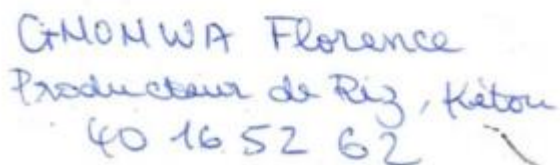 GMONWA Florence
Producteur de Riz, Kétou
40 16 52 62